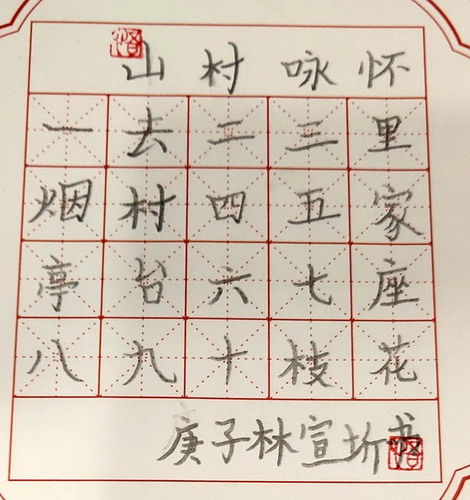 山村咏怀
一去二三里
烟村四五家
亭台六七座
八九十枝花
庚子林宣圻书